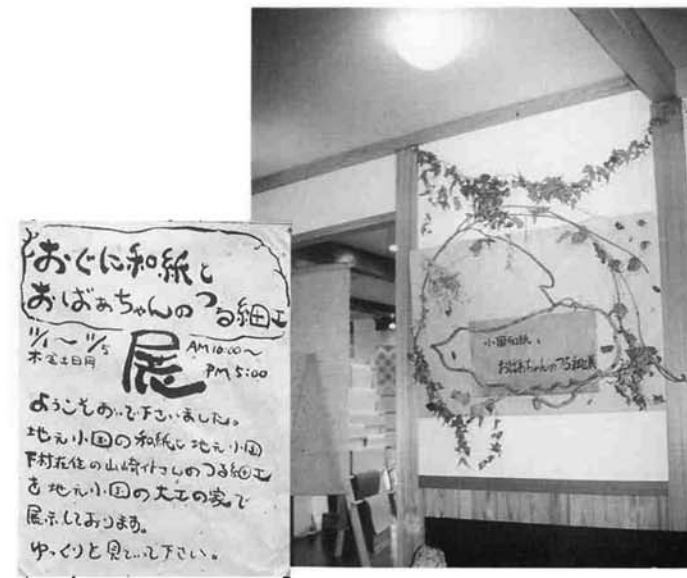 おぐに和紙と
おばあちゃんのつる細工
展
11/1〜11/5
木金土日月
AM10:00〜
PM5:00
ようこそおいで下さいました。
地元小国の和紙と地元小国
下村在住の山崎イトさんのつる細工
を地元小国の大工の家で
展示しております。
ゆっくりと見ていって下さい。
小国和紙と
おばあちゃんのつる細工展